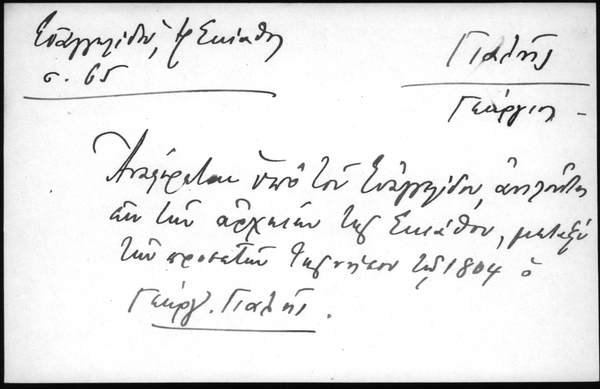 Εὐαγγελίδου, Ἡ Σκίαθος
σ. 65
Γιαλής
Γεώργιος
Ἀναφέρεται ὑπὸ τοῦ Εὐαγγελίδου, ἀντλοῦντος
ἐκ τῶν ἀρχείων τῆς Σκιάθου, μεταξὺ
τῶν προεστῶν τῆς νήσου τῷ 1804 ὁ
Γεώργ. Γιαλής.